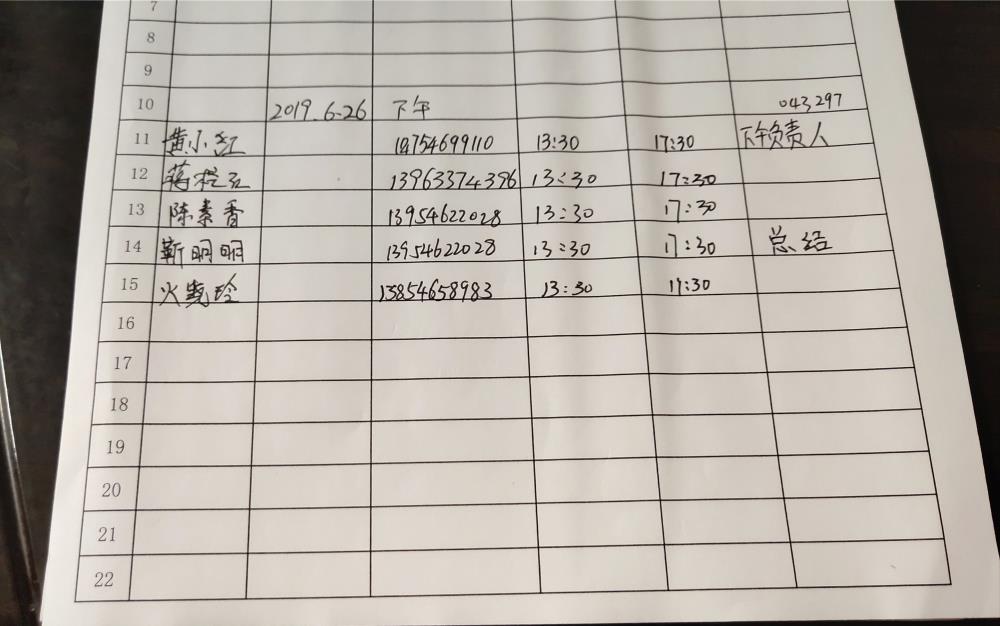 7
8
9
10 2019.6.26 下午 043,297
11 黄小红 18754699110 13:30 17:30 下午负责人
12 蒋 13963374396 13:30 17:30
13 陈素香 13954622028 13:30 17:30
14 靳明明 13954622028 13:30 17:30 总结
15 火晓玲 13854658983 13:30 17:30
16
17
18
19
20
21
22